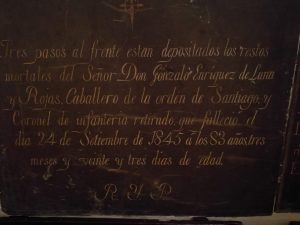 Tres pasos al frente estan depositados los restos
mortales del Señor Don Gonzalo Enriquez de Luna
y Rojas, Caballero de la orden de Santiago, y
Coronel de infanteria retirado, que falleció el
dia 24 de Setiembre de 1845 à los 83 años tres
meses y veinte y tres dias de edad.
R. Y. P.